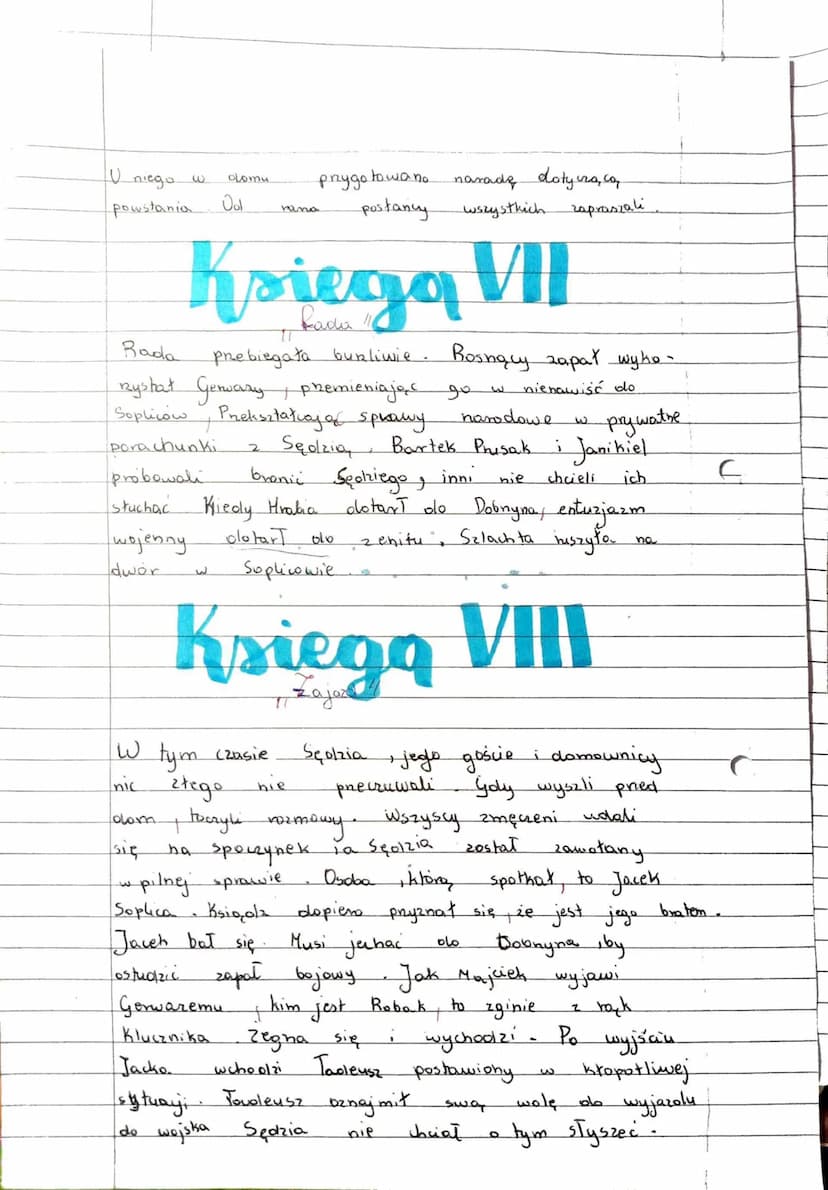 U niego w domu przygotowano naradę dotyczącą
powstania. Od rana posłańcy wszystkich zapraszali.
Księga VII
"Rada"
Rada przebiegała burzliwie. Rosnący zapał wyko-
rzystał Gerwazy, przemieniając go w nienawiść do
Sopliców, Przekształcając sprawy narodowe w prywatne
porachunki z Sędzią. Bartek Prusak i Janikiel
próbowali bronić Sędziego, inni nie chcieli ich
słuchać Kiedy Hrabia dotarł do Dobrzyna, entuzjazm
wojenny dotarł do zenitu. Szlachta ruszyła na
dwór w Soplicowie.
Księga VIII
"Zajazd"
W tym czasie Sędzia, jego goście i domownicy
nic złego nie przeczuwali. Gdy wyszli przed
dom, toczyli rozmowy. Wszyscy zmęczeni udali
się na spoczynek i a Sędzia został zawołany
w pilnej sprawie. Osoba, którą spotkał, to Jacek
Soplica. Ksiądz dopiero przyznał się, że jest jego bratem.
Jacek bał się. Musi jechać do Dobrzyna, by
ostudzić zapał bojowy. Jak Majciek wyjawi
Gerwazemu, kim jest Robak, to zginie z rąk
Klucznika. Żegna się i wychodzi. Po wyjściu
Jacka wchodzi Tadeusz postawiony w kłopotliwej
sytuacji. Tadeusz oznajmił swą wolę do wyjazdu
do wojska Sędzia nie chciał o tym słyszeć.